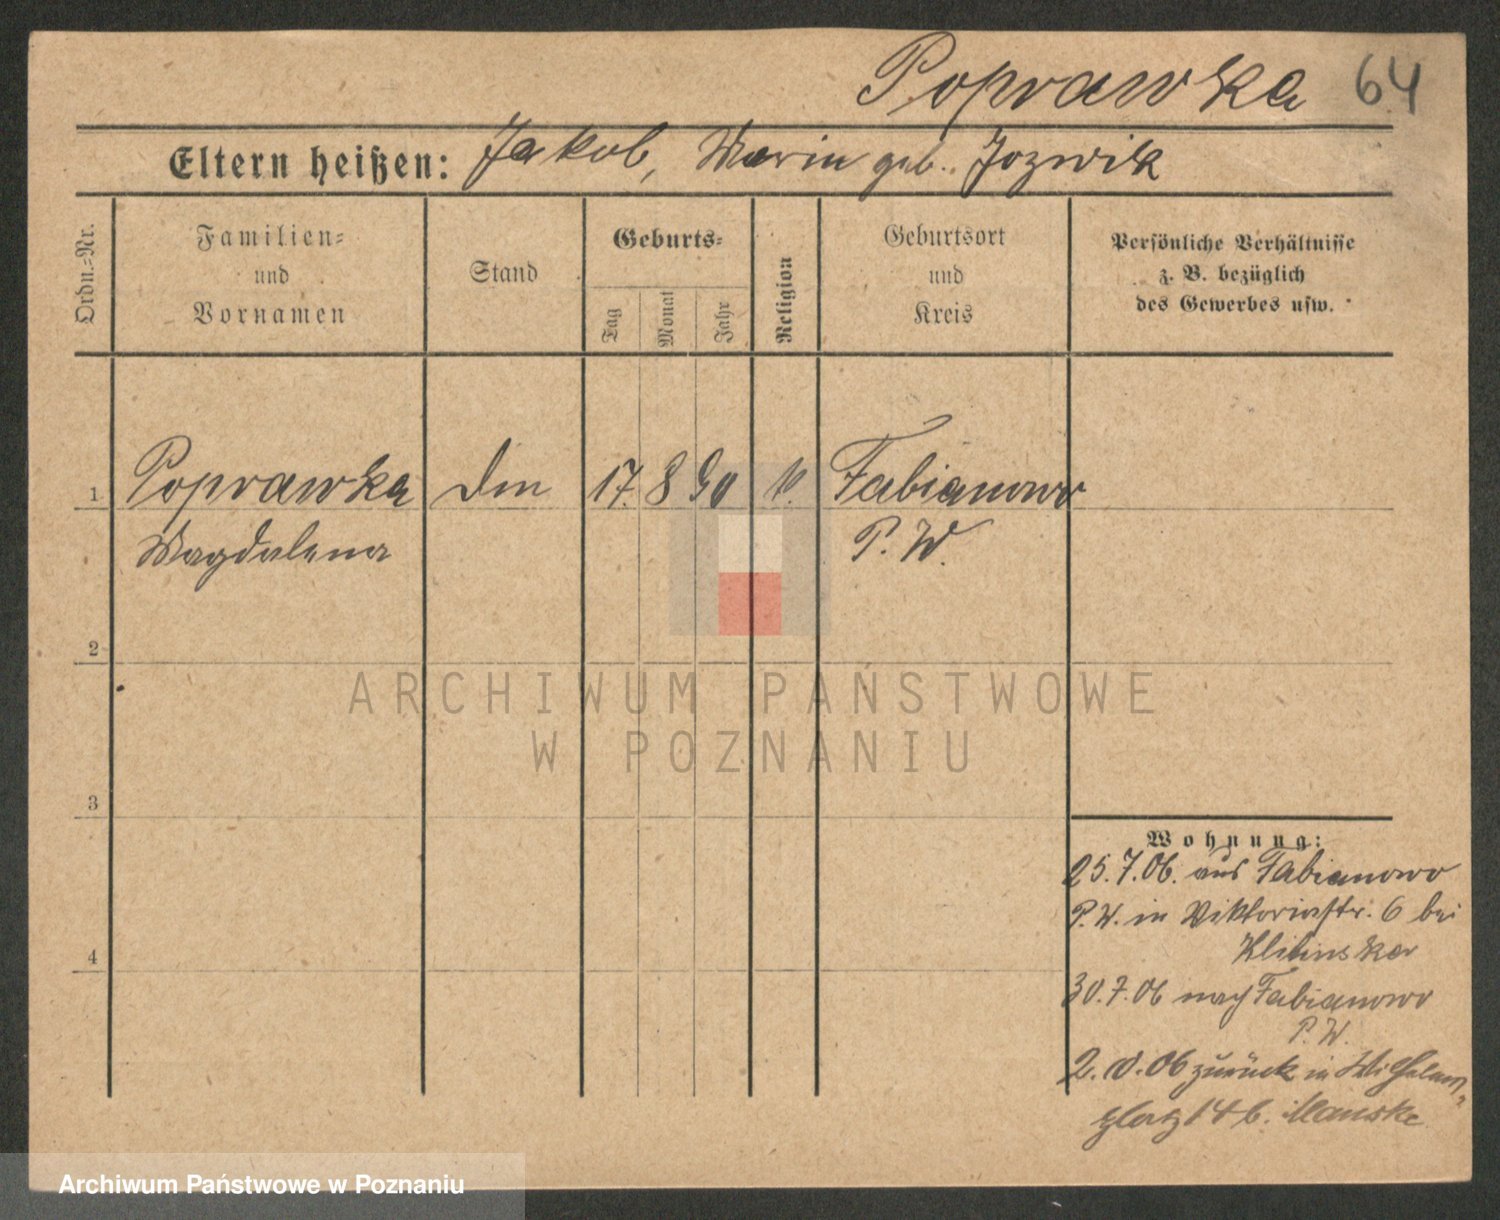 Poprawka 64
Eltern heißen: Jakob, Maria geb. Jozwik
Ordn.-Nr.
Familien-
und
Vornamen
Stand
Geburts-
Tag
Monat
Jahr
Religion
Geburtsort
und
Kreis
Persönliche Verhältnisse
z. B. bezüglich
des Gewerbes usw.
1 Poprawka 17. 8 90 Fabianowo
Magdalena P. W.
2
ARCHIWUM PAŃSTWOWE
W POZNANIU
3
Wohnung:
25.7.06. aus Fabianowo
P.W. in Viktoriastr. 6 bei
4
30.7.06 nach Fabianowo
P.W.
zurück in Wilhelm-
platz 14 b. Manske
Archiwum Państwowe w Poznaniu